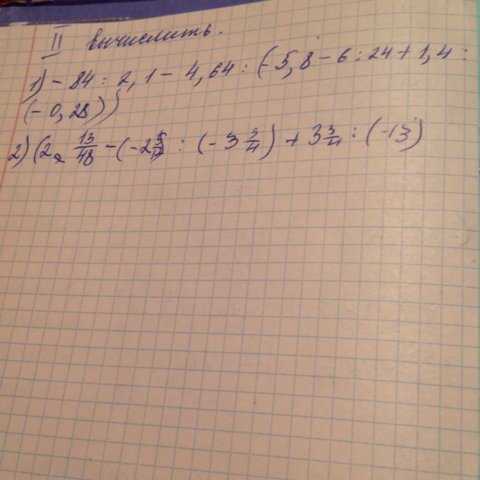 II Вычислить.
1) - 84 : 2,1 - 4,64 : (-5,8 - 6 : 24 + 1,4 :
(-0,28))
2) (2 13/48 - (-2 : (-3 3/4) + 3 3/4 : (-13)